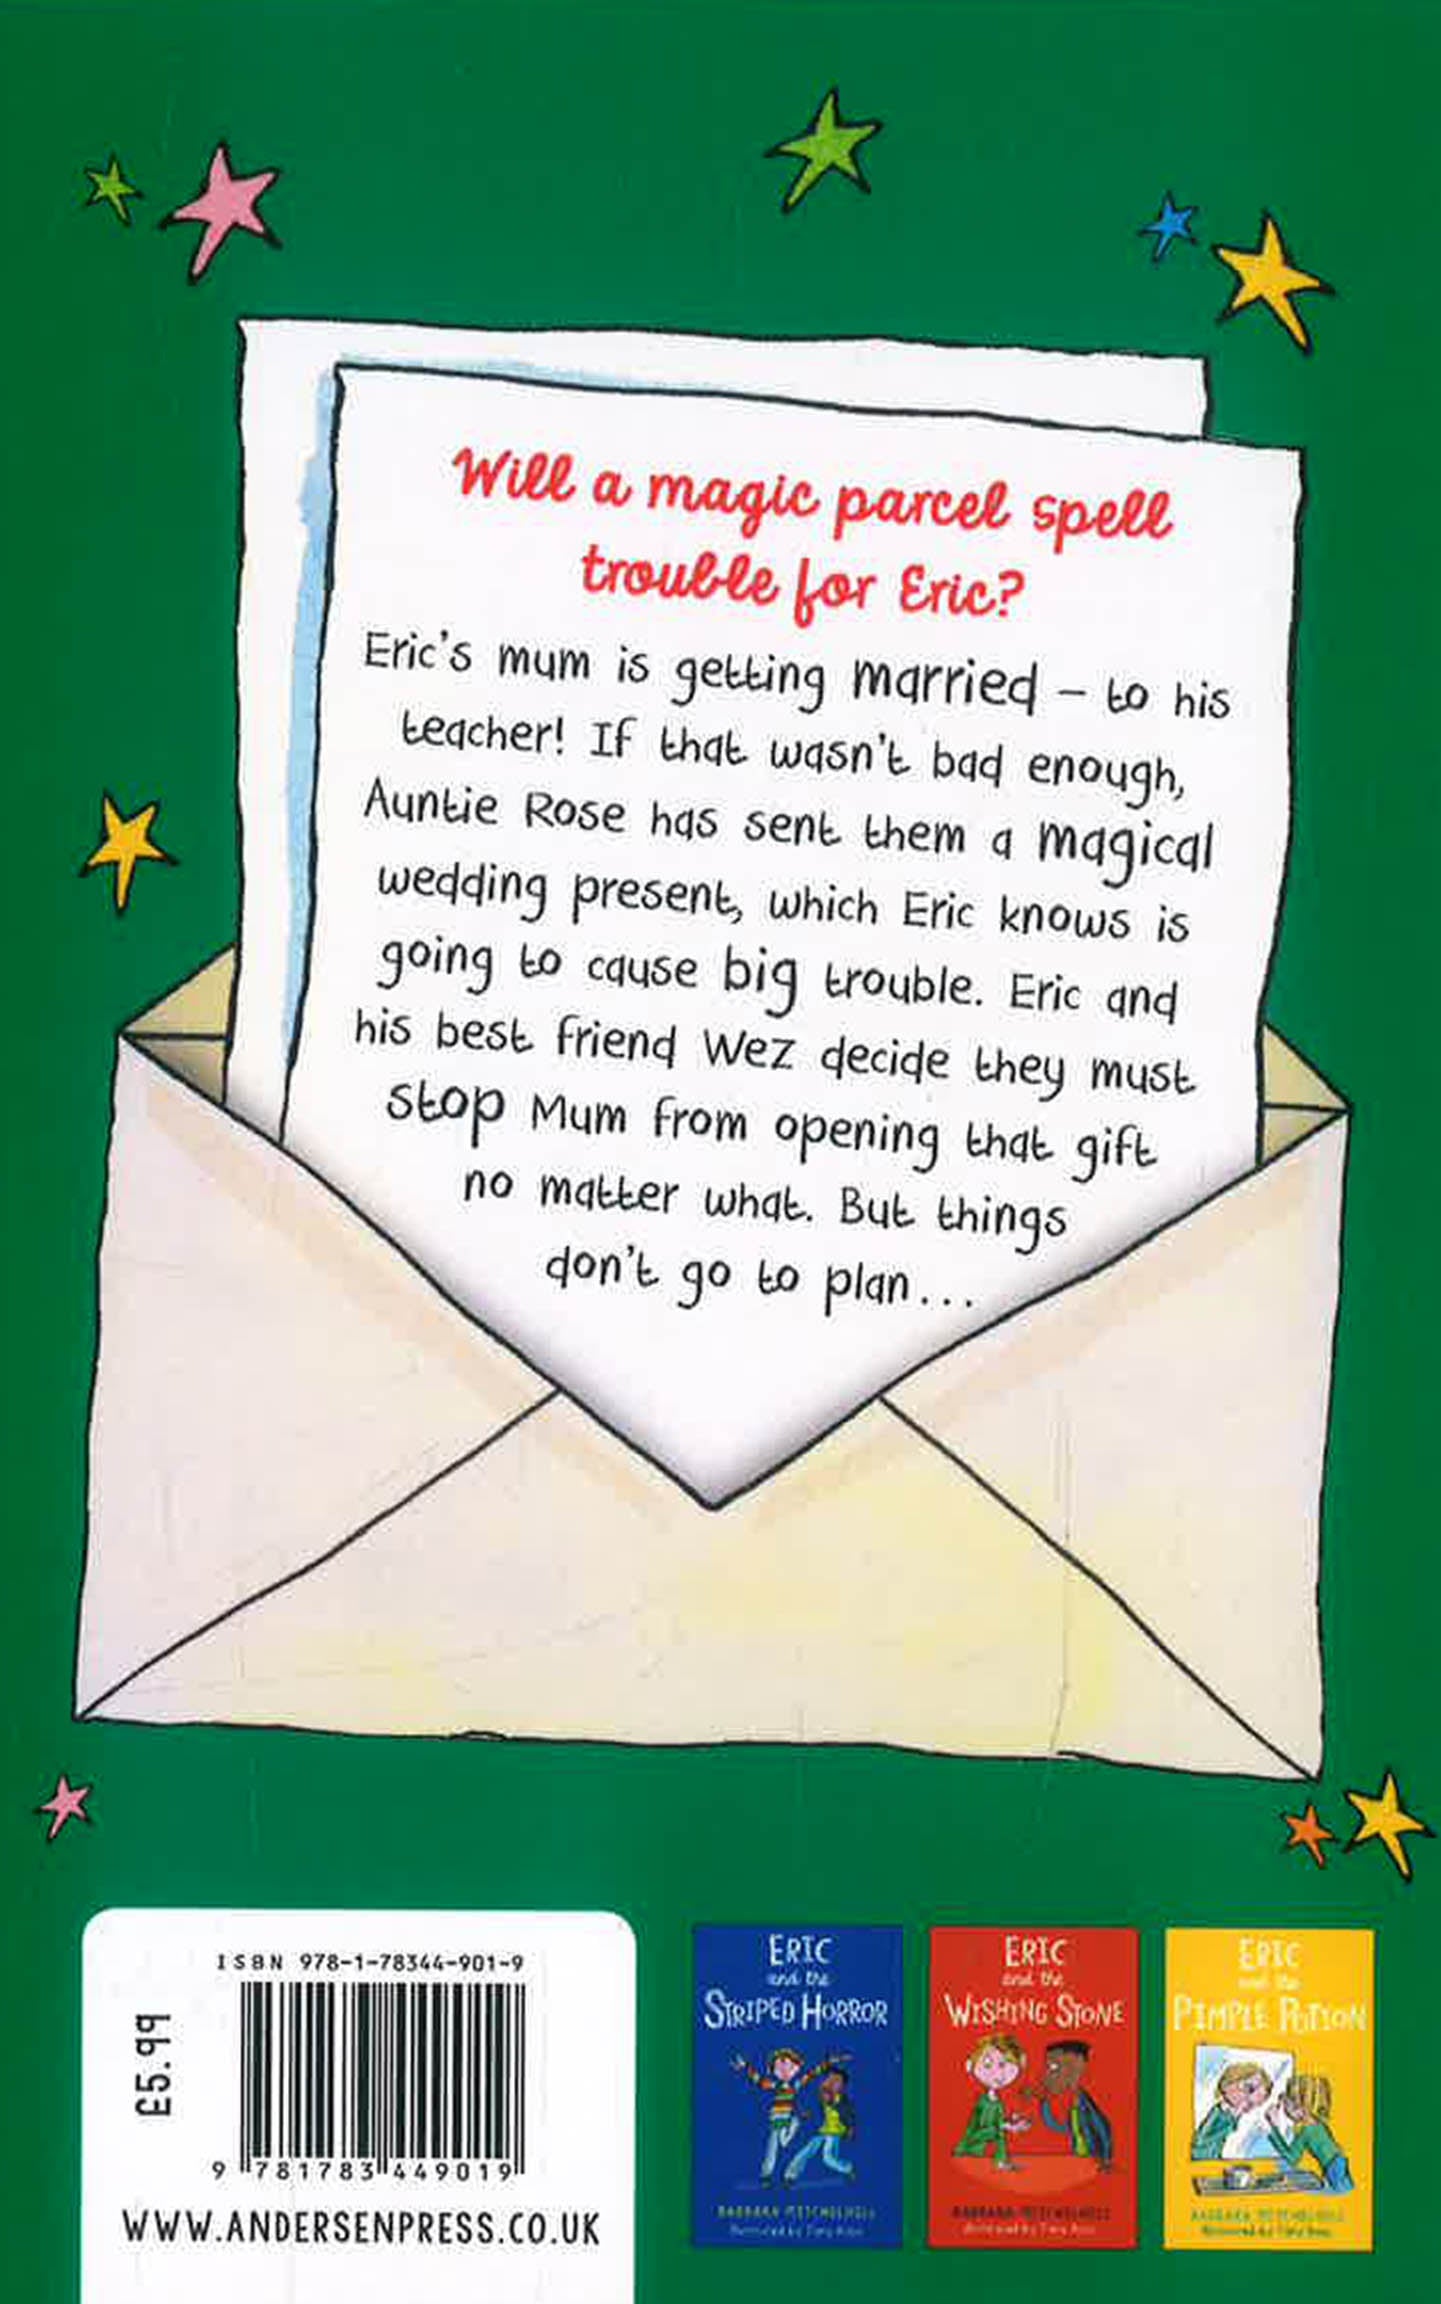 Will a magic parcel spell
trouble for Eric?
Eric's mum is getting married – to his
teacher! If that wasn't bad enough,
Auntie Rose has sent them a magical
wedding present, which Eric knows is
going to cause big trouble. Eric and
his best friend Wez decide they must
stop Mum from opening that gift
no matter what. But things
don't go to plan...
ISBN 978-1-78344-901-9
£5.99
9 781783 449019
WWW.ANDERSENPRESS.CO.UK
ERIC
and the
STRIPED HORROR
BARBARA MITCHELHILL
Illustrated by Tony Ross
ERIC
and the
WISHING STONE
BARBARA MITCHELHILL
Illustrated by Tony Ross
ERIC
and the
PIMPLE POTION
BARBARA MITCHELHILL
Illustrated by Tony Ross